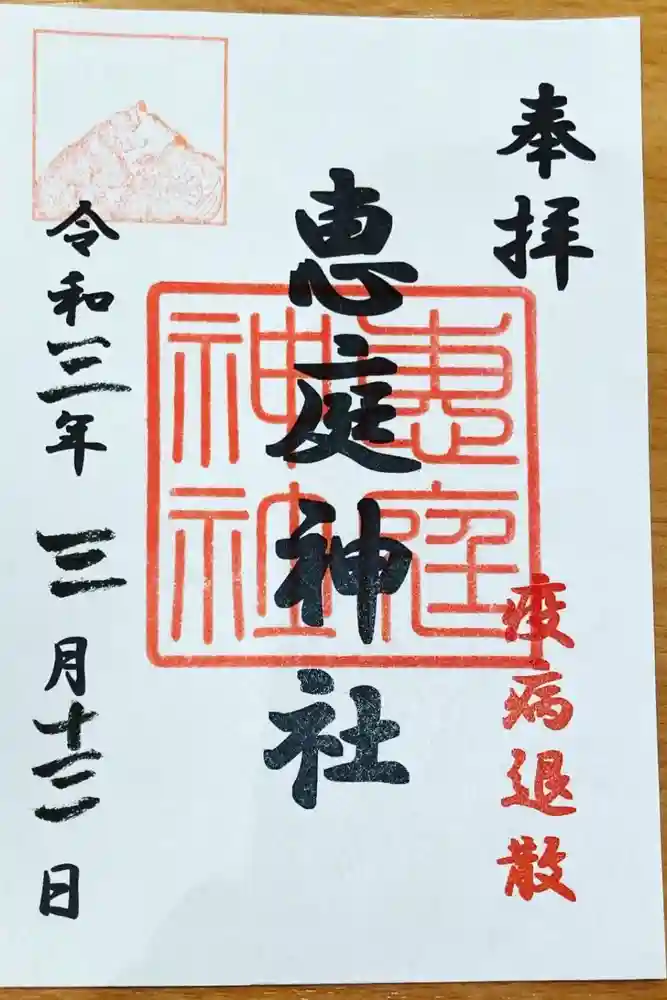 奉拝
疫病退散
恵庭神社
恵庭
神社
令和三年三月十三日